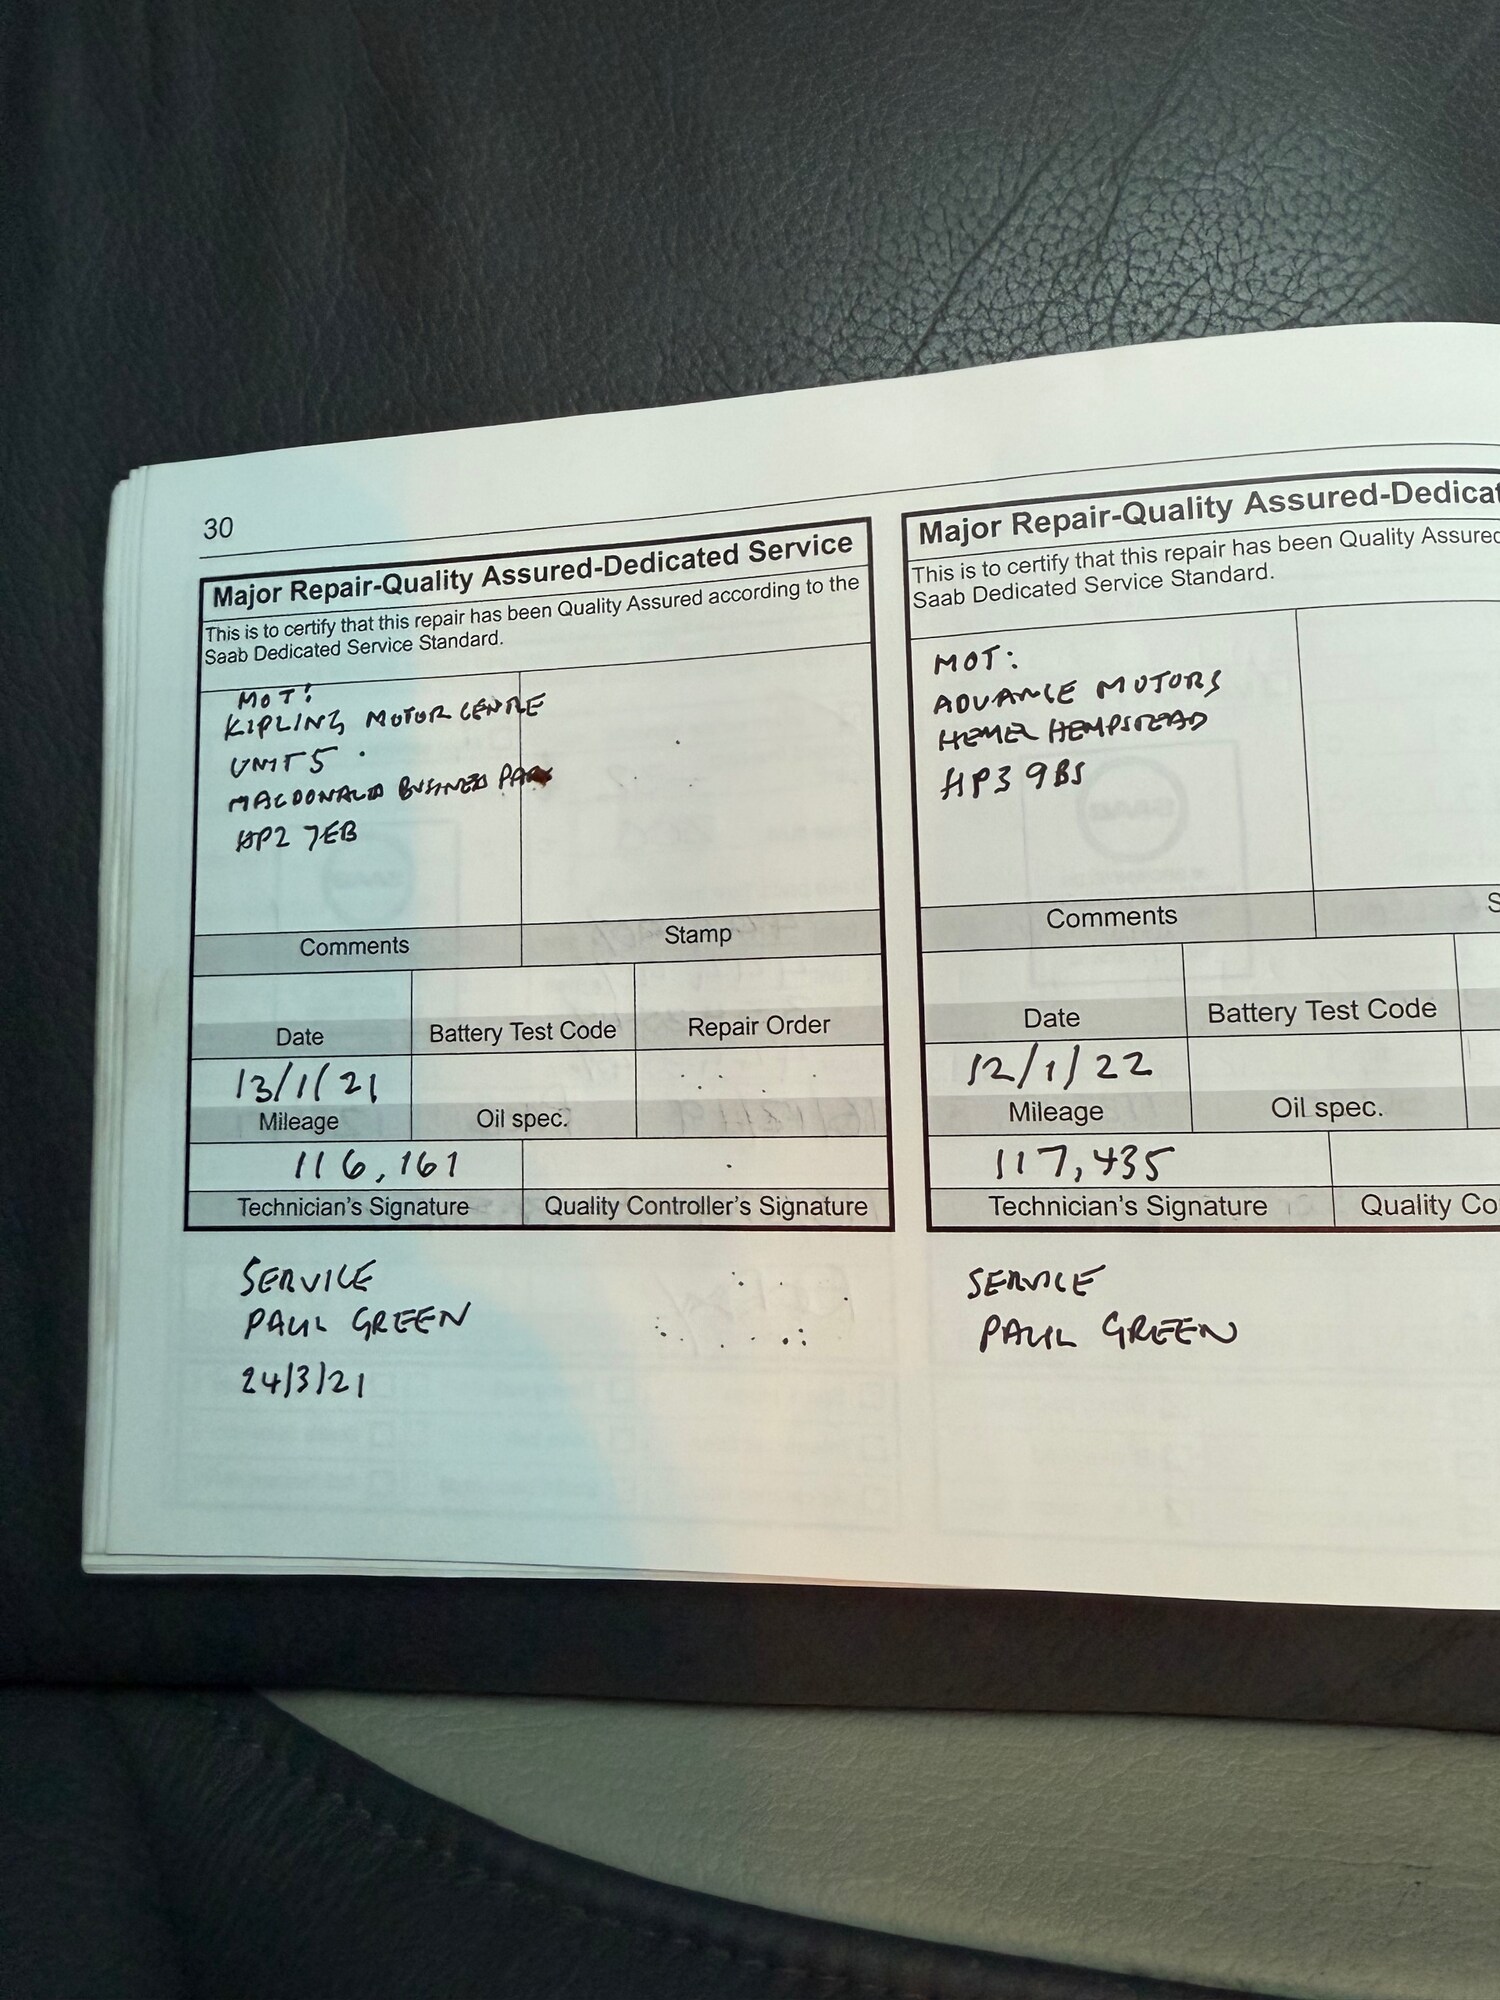 30
Major Repair-Quality Assured-Dedicated Service
This is to certify that this repair has been Quality Assured according to the
Saab Dedicated Service Standard.
MOT:
KIPLING MOTOR CENTRE
UNIT 5
MACDONALD BUSINESS PARK
HP2 7EB
Comments
Stamp
Date
Battery Test Code
Repair Order
13/1/21
Mileage
Oil spec.
116,161
Technician's Signature
Quality Controller's Signature
SERVICE
PAUL GREEN
24/3/21
Major Repair-Quality Assured-Dedicat
This is to certify that this repair has been Quality Assured
Saab Dedicated Service Standard.
MOT:
ADVANCE MOTORS
HEMEL HEMPSTEAD
HP3 9BS
Comments
S
Date
Battery Test Code
12/1/22
Mileage
Oil spec.
117,435
Technician's Signature
Quality Co
SERVICE
PAUL GREEN